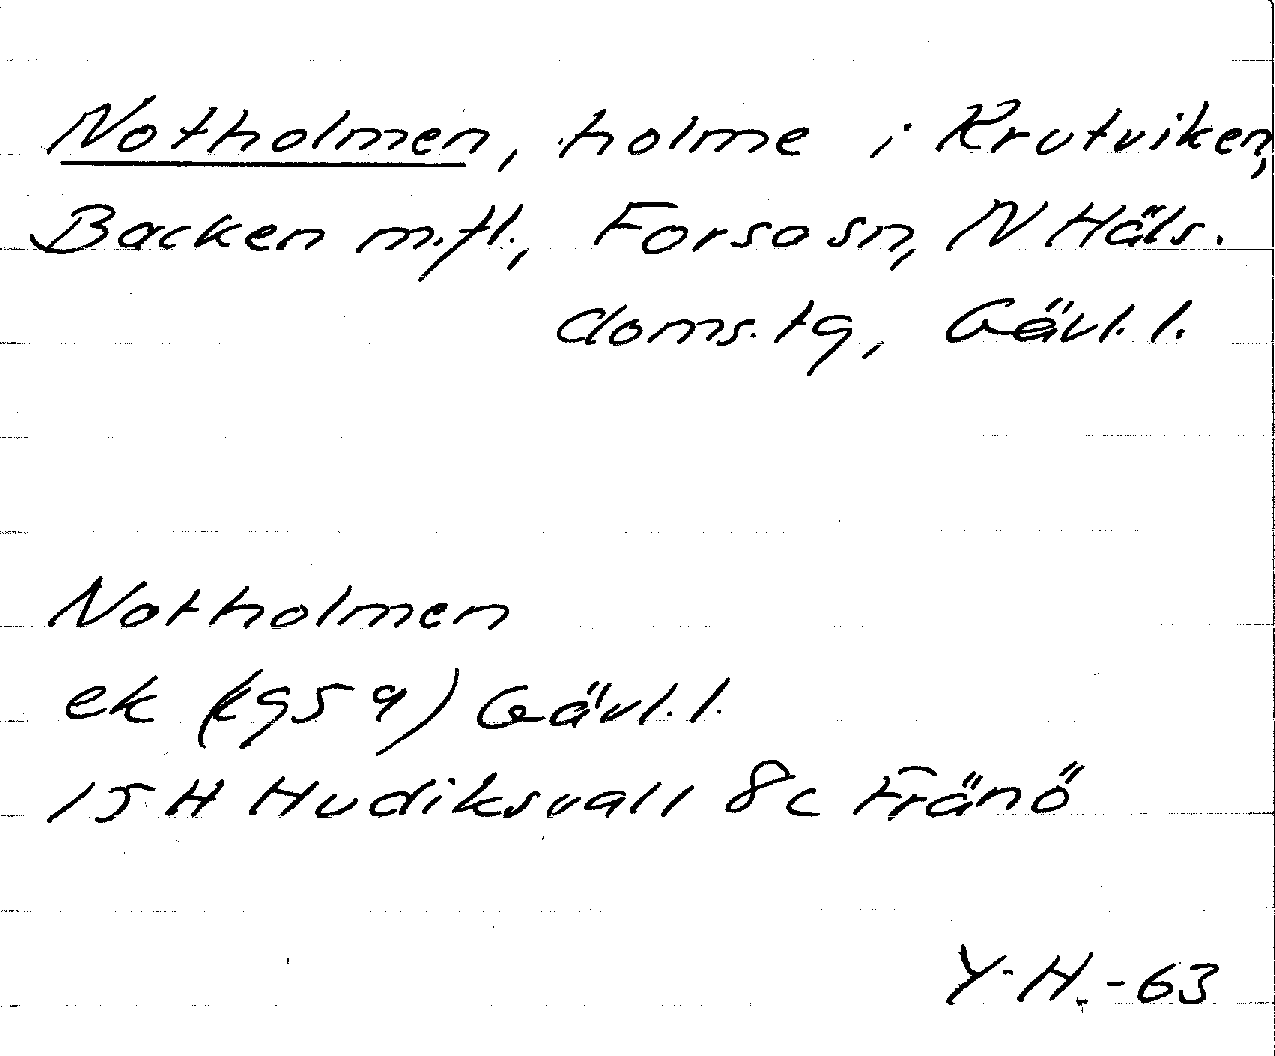 Notholmen, holme i Krutviken,
Backen m.fl., Forsa sn, N Häls.
doms.tg, Gävl.l.
Notholmen
ek (kg59) Gävl.l.
15H Hudiksvall 8c Frånö
Y.H.-63